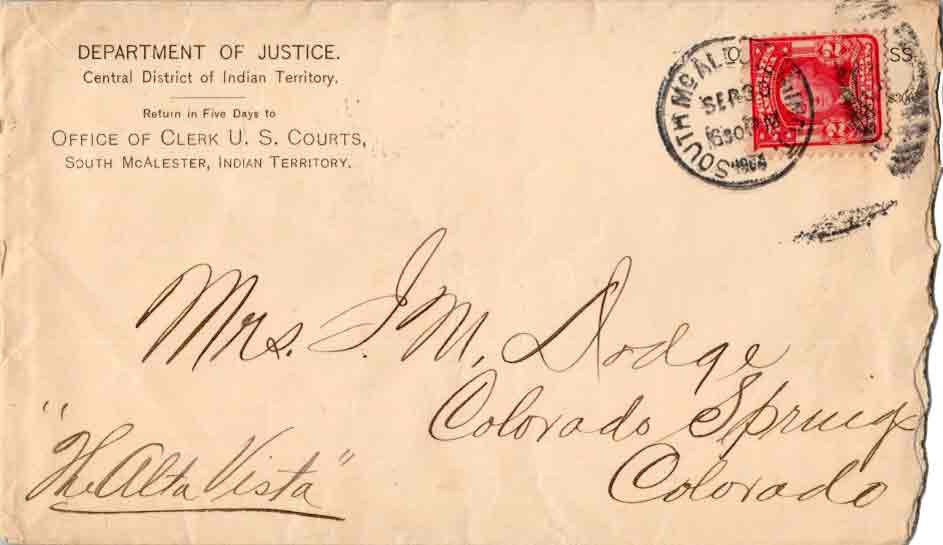 DEPARTMENT OF JUSTICE.
Central District of Indian Territory.
Return in Five Days to
OFFICE OF CLERK U. S. COURTS,
SOUTH MCALESTER, INDIAN TERRITORY.
SOUTH MC
SEP
630
1904
SS
2 2
Mrs. J. M. Dodge
Colorado Springs
Colorado
"The Alta Vista"